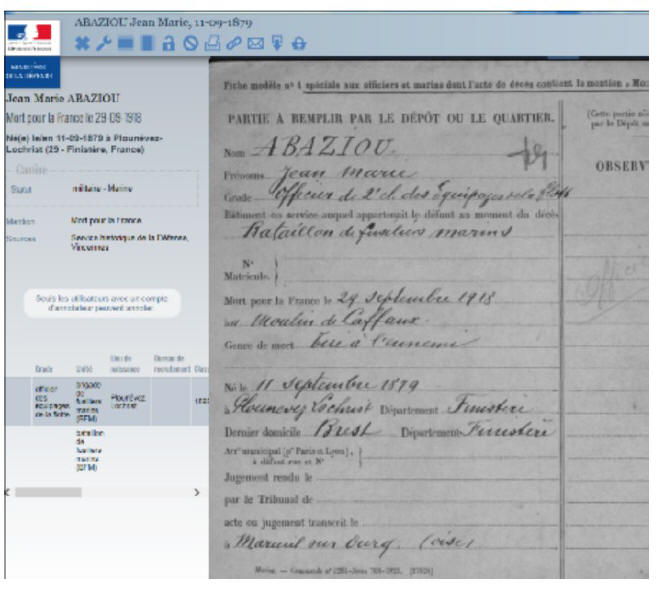 ABAZIOU Jean Marie, 11-09-1879
MINISTÈRE
DE LA DÉFENSE
Jean Marie ABAZIOU
Mort pour la France le 29-09-1918
Né(e) le/en 11-09-1879 à Plounévez-
Lochrist (29 - Finistère, France)
Carrière
Statut militaire - Marine
Mention Mort pour la France
Sources Service historique de la Défense,
Vincennes
Seuls les utilisateurs avec un compte
d'annotateur peuvent annoter.
Grade Unité Lieu de naissance Bureau de recrutement Class
officier des équipages de la flotte
brigade de fusiliers marins (BFM)
Plounévez-Lochrist
bataillon de fusiliers marins (BFM)
Fiche modèle n° 1 spéciale aux officiers et marins dont l'acte de décès contient la mention « Mor
PARTIE À REMPLIR PAR LE DÉPÔT OU LE QUARTIER.
(Cette partie
par le Dépôt
OBSERV
Nom ABAZIOU
Prénoms Jean Marie
Grade Officier de 2e cl. des Équipages de la Flotte
Bâtiment ou service auquel appartenait le défunt au moment du décès
Bataillon de fusiliers marins
N°
Matricule.
Mort pour la France le 29 Septembre 1918
au Moulin de Laffaux
Genre de mort tué à l'ennemi
Né le 11 Septembre 1879
à Plounevez Lochrist Département Finistère
Dernier domicile Brest Département Finistère
Arr' municipal (p' Paris et Lyon),
à défaut rue et N°
Jugement rendu le
par le Tribunal de
acte ou jugement transcrit le
à Mareuil sur Ourcq (oise)